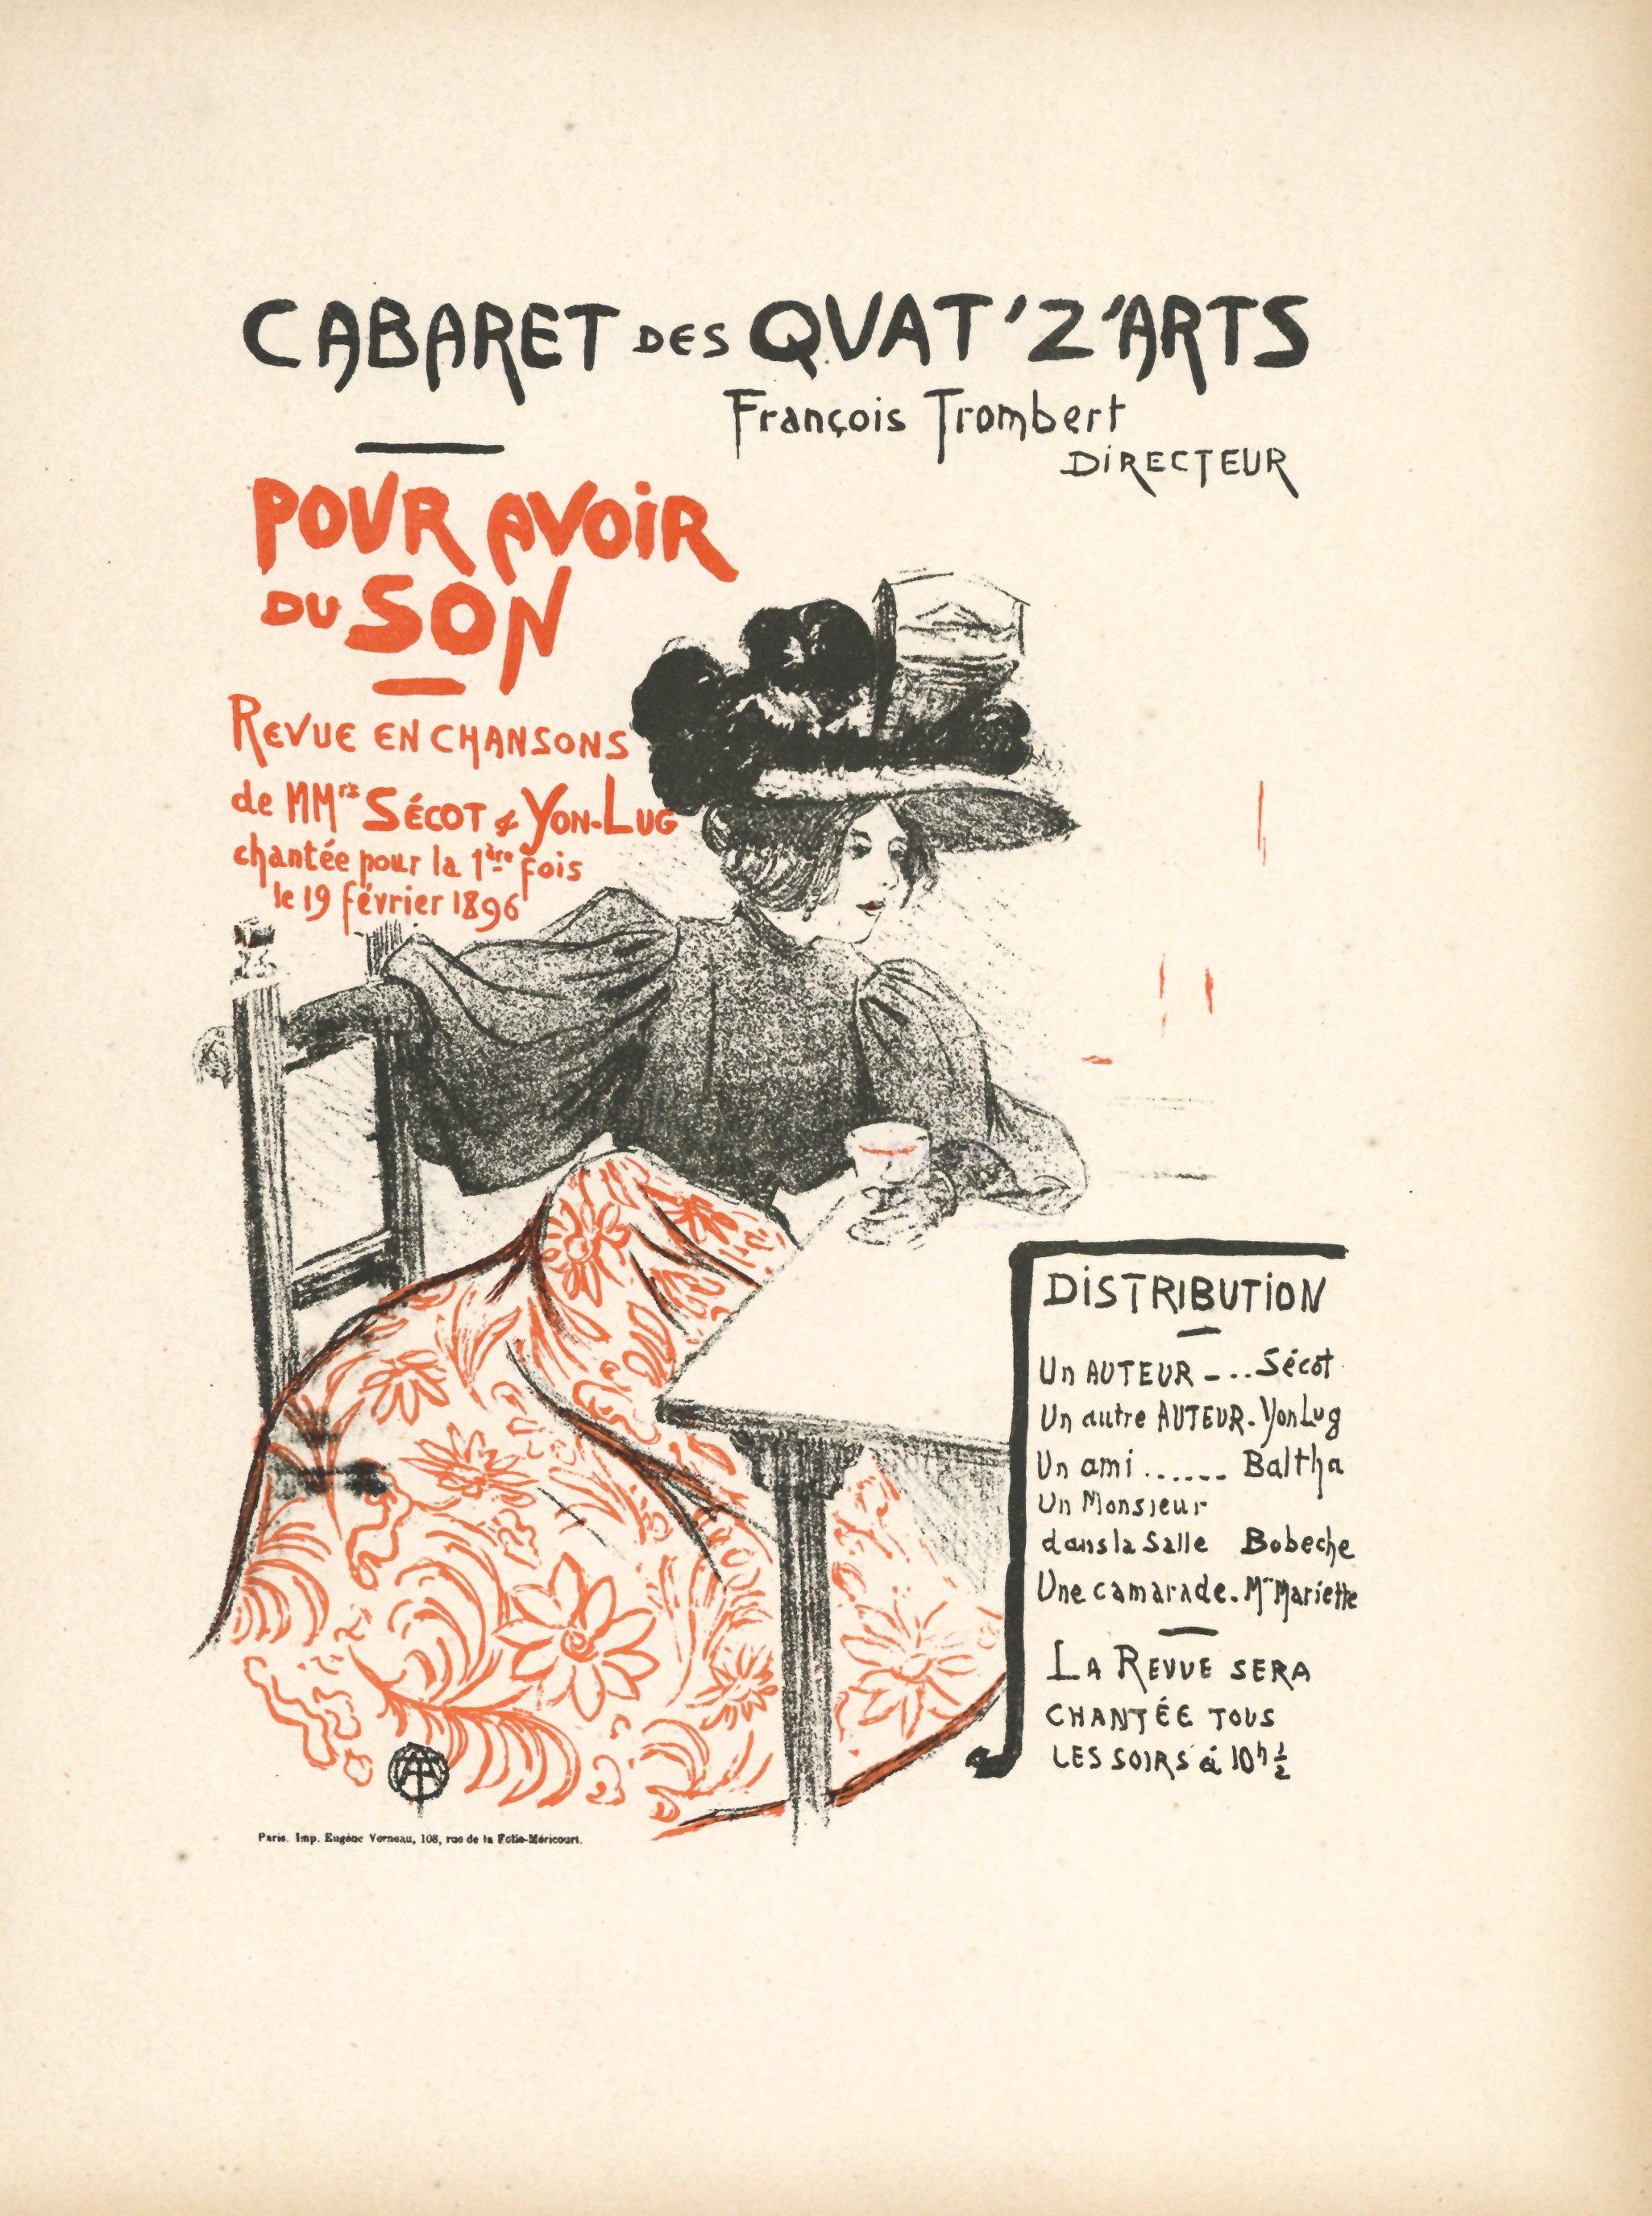 CABARET DES QUAT'Z'ARTS
François Trombert
DIRECTEUR
POUR AVOIR
DU SON
REVUE EN CHANSONS
de MMrs SÉCOT & YON-LUG
chantée pour la 1ère fois
le 19 février 1896
DISTRIBUTION
Un AUTEUR - ... Sécot
Un autre AUTEUR - Yon Lug
Un ami ...... Baltha
Un Monsieur
dans la Salle Bobeche
Une camarade. Mme Mariette
LA REVUE SERA
CHANTÉE TOUS
LES SOIRS à 10h ½
Paris. Imp. Eugène Verneau, 108, rue de la Folie-Méricourt.